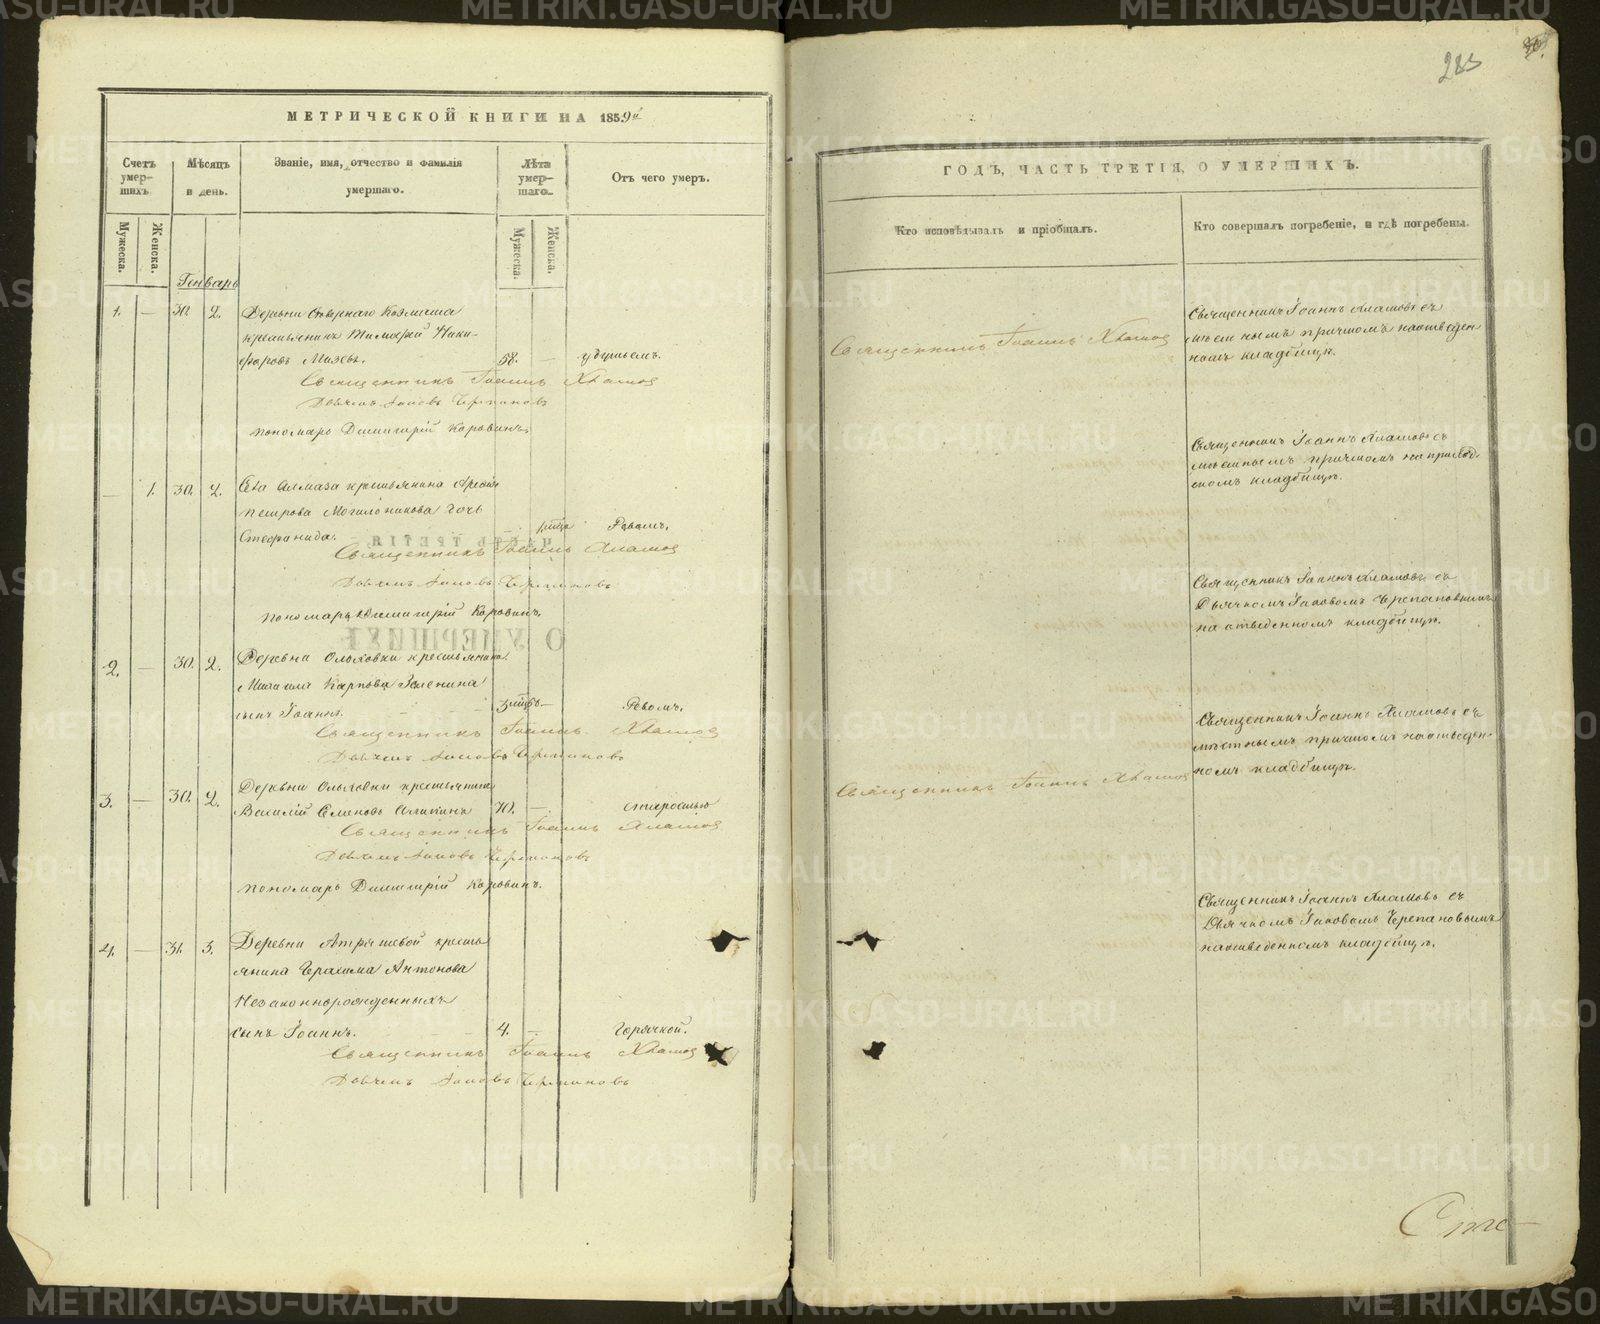 МЕТРИЧЕСКОЙ КНИГИ НА 1859й
Счетъ умер-шихъ.
Мѣсяцъ и день.
Званіе, имя, отчество и фамилія умершаго.
Лѣта умер-шаго.
Отъ чего умеръ.
Мужеска.
Женска.
Мужеска.
Женска.
Генварь
1. — 30. 2. Деревни
крестьянинъ Тимофей Ники-
форовъ 58. —
Священникъ Іоаннъ Хламов
Дьячекъ Іаковъ Черепановъ
пономарь Димитрій Коровинъ.
— 1. 30. 2. Села Алмаза крестьянина
Петрова Могильникова дочь
Стефанида. Ревомъ.
Священникъ Іоаннъ Хламов
Дьячекъ Іаковъ Черепановъ
пономарь Димитрій Коровинъ.
2. — 30. 2. Деревни Ольховки крестьянина
Михаила Карпова Зеленина
сынъ Іоаннъ. Ревомъ.
Священникъ Іоаннъ Хламов
Дьячекъ Іаковъ Черепановъ
3. — 30. 2. Деревни Ольховки крестьянинъ
Василій Семеновъ 70. — старостью
Священникъ Іоаннъ Хламов
Дьячекъ Іаковъ Черепановъ
пономарь Димитрій Коровинъ.
4. — 31. 3. Деревни кресть-
янина Антонова
Незаконнорожденныхъ
сынъ Іоаннъ. 4. — Горячкой.
Священникъ Іоаннъ Хламов
Дьячекъ Іаковъ Черепановъ
283
ГОДЪ, ЧАСТЬ ТРЕТІЯ, О УМЕРШИХЪ.
Кто исповѣдывалъ и пріобщалъ.
Кто совершалъ погребеніе, и гдѣ погребены.
Священникъ Іоаннъ Хламов
Священникъ Іоаннъ Хламовъ съ
мѣстнымъ причтомъ на отведен-
номъ кладбищѣ.
Священникъ Іоаннъ Хламовъ съ
мѣстнымъ причтомъ на приход-
скомъ кладбищѣ.
Священникъ Іоаннъ Хламовъ съ
Дьячкомъ Іаковомъ Черепановымъ
на отведенномъ кладбищѣ.
Священникъ Іоаннъ Хламов
Священникъ Іоаннъ Хламовъ съ
мѣстнымъ причтомъ на отведен-
номъ кладбищѣ.
Священникъ Іоаннъ Хламовъ съ
Дьячкомъ Іаковомъ Черепановымъ
на отведенномъ кладбищѣ.
METRIKI.GASO-URAL.RU